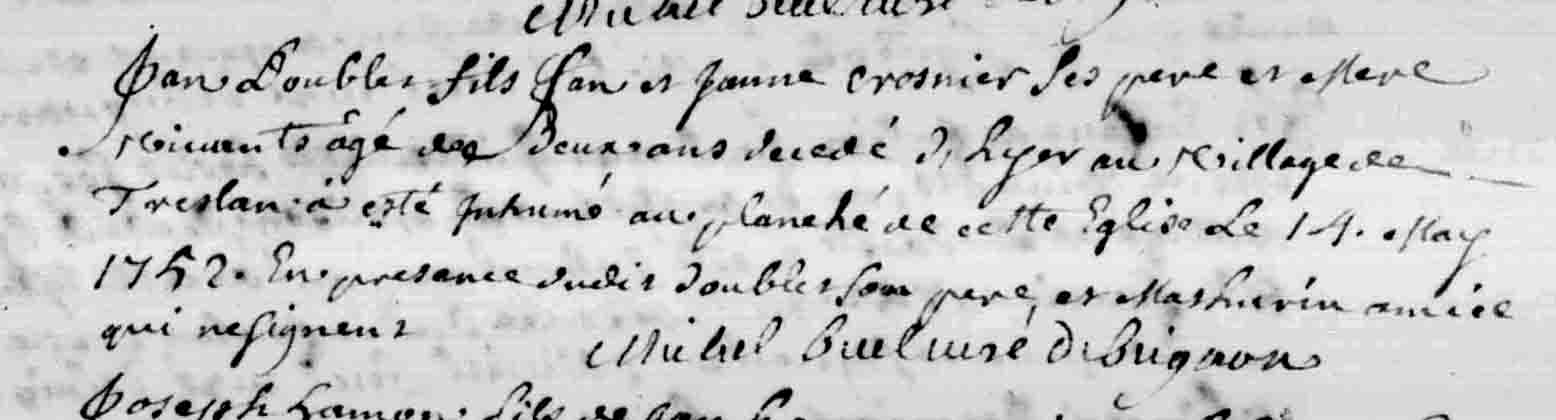 Jan Doublet fils Jan et Janne crosnier ses pere et Mere
vivants âgé de Deux ans decedé d'hyer au village de
Treslan a esté Inhumé au planché de cette Eglise Le 14. May
1752. En presance dudit doublet son pere, et Mathurin amice
qui ne signent
Michel curé de brignon
Joseph hamon fils de Jan